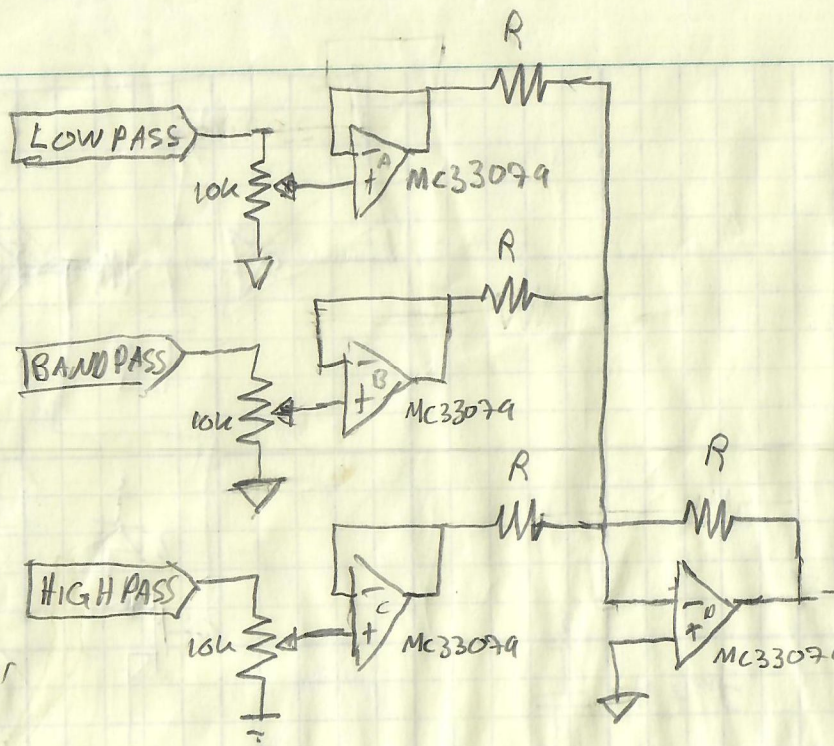 R
LOWPASS
-
A
+
10K
MC33079
R
BANDPASS
-
B
+
10K
MC33079
R
R
HIGHPASS
-
C
+
10K
MC33079
-
D
+
MC3307